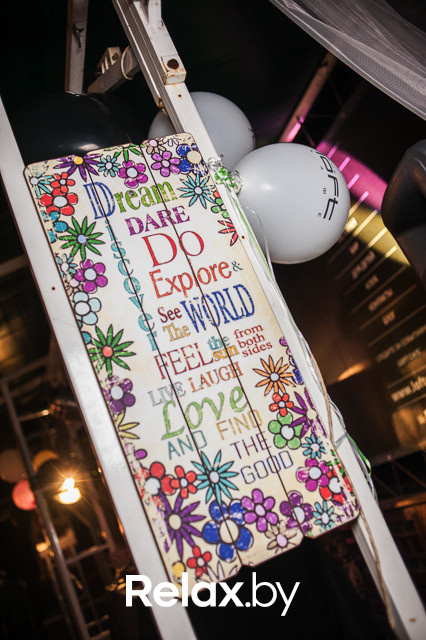 Dream
DARE
discover
DO
Explore &
See
The WORLD
FEEL the sun from both sides
LIVE LAUGH
Love
AND FIND
THE
GOOD
Relax.by